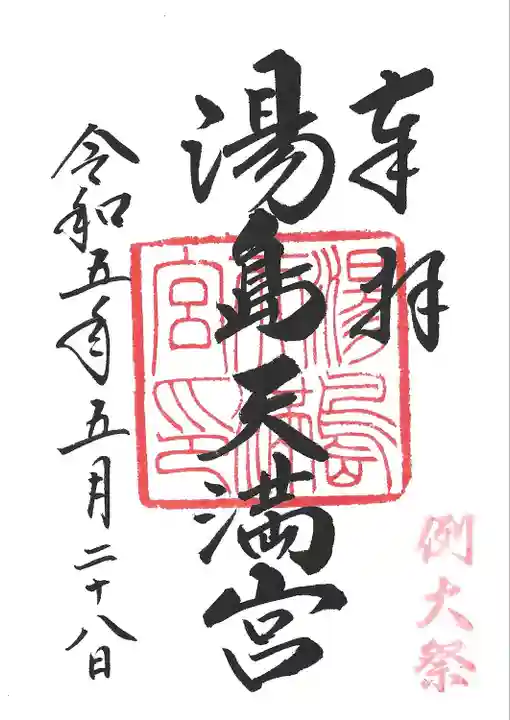 奉拝
湯島天満宮
湯島天満宮印
令和五年五月二十八日
例大祭